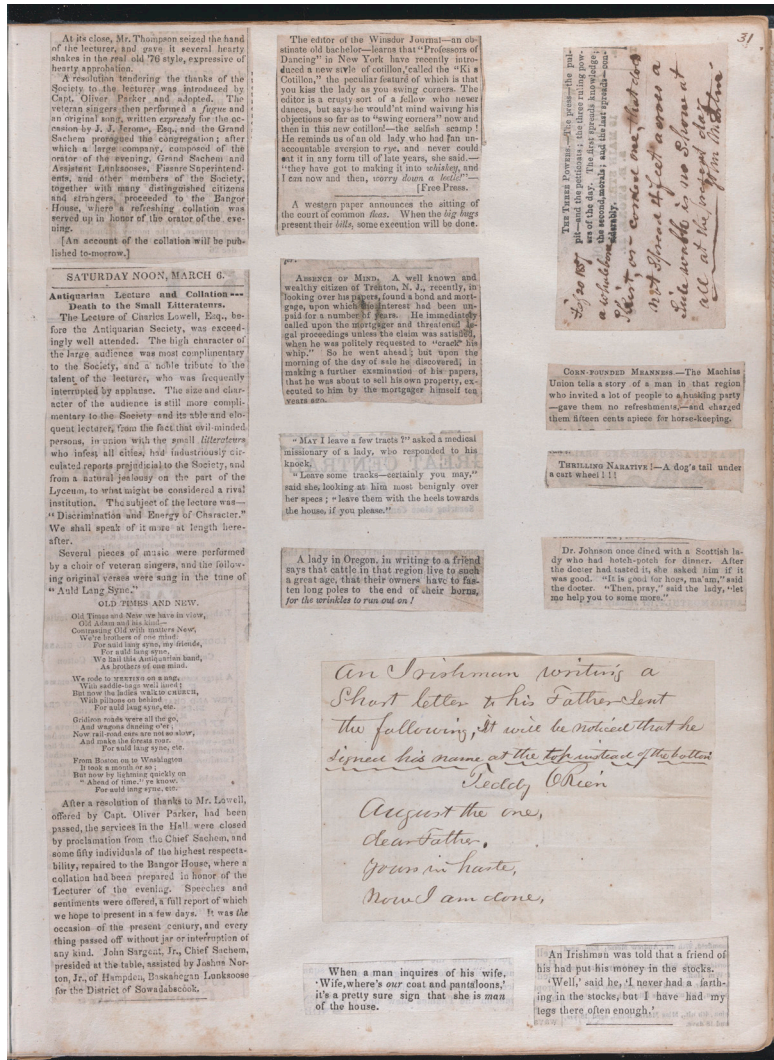 31
At its close, Mr. Thompson seized the hand
of the lecturer, and gave it several hearty
shakes in the real old '76 style, expressive of
hearty approbation.
A resolution tendering the thanks of the
Society to the lecturer was introduced by
Capt. Oliver Parker and adopted. The
veteran singers then performed a fugue and
an original song, written expressly for the oc-
casion by J. J. Jerome, Esq., and the Grand
Sachem prorogued the congregation; after
which a large company, composed of the
orator of the evening, Grand Sachem and
Assistant Lunksooses, Fissure Superintend-
ents, and other members of the Society,
together with many distinguished citizens
and strangers, proceeded to the Bangor
House, where a refreshing collation was
served up in honor of the orator of the eve-
ning.
[An account of the collation will be pub-
lished to-morrow.]
SATURDAY NOON, MARCH 6.
Antiquarian Lecture and Collation---
Death to the Small Litterateurs.
The Lecture of Charles Lowell, Esq., be-
fore the Antiquarian Society, was exceed-
ingly well attended. The high character of
the large audience was most complimentary
to the Society, and a noble tribute to the
talent of the lecturer, who was frequently
interrupted by applause. The size and char-
acter of the audience is still more compli-
mentary to the Society and its able and elo-
quent lecturer, from the fact that evil-minded
persons, in union with the small litterateurs
who infest all cities, had industriously cir-
culated reports prejudicial to the Society, and
from a natural jealousy on the part of the
Lyceum, to what might be considered a rival
institution. The subject of the lecture was—
"Discrimination and Energy of Character."
We shall speak of it more at length here-
after.
Several pieces of music were performed
by a choir of veteran singers, and the follow-
ing original verses were sung in the tune of
"Auld Lang Syne."
OLD TIMES AND NEW.
Old Times and New we have in view,
Old Adam and his kind—
Contrasting Old with matters New,
We're brothers of one mind
For auld lang syne, my friends,
For auld lang syne,
We hail this Antiquarian band,
As brothers of one mind.
We rode to MEETING on a nag,
With saddle-bags well lined;
But now the ladies walk to CHURCH,
With pillions on behind
For auld lang syne, etc.
Gridiron roads were all the go,
And wagons dancing o'er;
Now rail-road cars are not so slow,
And make the forests roar.
For auld lang syne, etc.
From Boston on to Washington
It took a month or so;
But now by lightning quickly on
"Ahead of time." ye know.
For auld lang syne, etc.
After a resolution of thanks to Mr. Lowell,
offered by Capt. Oliver Parker, had been
passed, the services in the Hall were closed
by proclamation from the Chief Sachem, and
some fifty individuals of the highest respecta-
bility, repaired to the Bangor House, where a
collation had been prepared in honor of the
Lecturer of the evening. Speeches and
sentiments were offered, a full report of which
we hope to present in a few days. It was the
occasion of the present century, and every
thing passed off without jar or interruption of
any kind. John Sargent, Jr., Chief Sachem,
presided at the table, assisted by Joshua Nor-
ton, Jr., of Hampden, Baskahegan Lunksoose
for the District of Sowadabscook.
The editor of the Winsdor Journal—an ob-
stinate old bachelor—learns that "Professors of
Dancing" in New York have recently intro-
duced a new style of cotillon, called the "Kiss
Cotillon," the peculiar feature of which is that
you kiss the lady as you swing corners. The
editor is a crusty sort of a fellow who never
dances, but says he would'nt mind waving his
objections so far as to "swing corners" now and
then in this new cotillon!—the selfish scamp!
He reminds us of an old lady who had an un-
accountable aversion to rye, and never could
eat it in any form till of late years, she said.—
"they have got to making it into whiskey, and
I can now and then, worry down a leetle!"—
[Free Press.
A western paper announces the sitting of
the court of common fleas. When the big bugs
present their bills, some execution will be done.
ABSENCE OF MIND. A well known and
wealthy citizen of Trenton, N. J., recently, in
looking over his papers, found a bond and mort-
gage, upon which the interest had been un-
paid for a number of years. He immediately
called upon the mortgager and threatened le-
gal proceedings unless the claim was satisfied,
when he was politely requested to "crack his
whip." So he went ahead; but upon the
morning of the day of sale he discovered, in
making a further examination of his papers,
that he was about to sell his own property, ex-
ecuted to him by the mortgager himself ten
years ago.
"MAY I leave a few tracts?" asked a medical
missionary of a lady, who responded to his
knock.
"Leave some tracks—certainly you may,"
said she, looking at him most benignly over
her specs; "leave them with the heels towards
the house, if you please."
A lady in Oregon, in writing to a friend
says that cattle in that region live to such
a great age, that their owners have to fas-
ten long poles to the end of their horns,
for the wrinkles to run out on!
THE THREE POWERS.—The press—the pul-
pit—and the petticoats; the three ruling pow-
ers of the day. The first spreads knowledge;
the second, morals; and the last spreads—con-
siderably.
not spread 4 feet across a
all at the present day
CORN-FOUNDED MEANNESS.—The Machias
Union tells a story of a man in that region
who invited a lot of people to a husking party
—gave them no refreshments,—and charged
them fifteen cents apiece for horse-keeping.
THRILLING NARATIVE!—A dog's tail under
a cart wheel!!!
Dr. Johnson once dined with a Scottish la-
dy who had hotch-potch for dinner. After
the doctor had tasted it, she asked him if it
was good. "It is good for hogs, ma'am," said
the doctor. "Then, pray," said the lady, "let
me help you to some more."
An Irishman writing a
Short letter to his Father Sent
the following, It will be noticed that he
Signed his name at the top instead of the bottom
Teddy ORien
August the one,
dear Father.
Yours in haste,
Now I am done,
When a man inquires of his wife,
'Wife, where's our coat and pantaloons,'
it's a pretty sure sign that she is man
of the house.
An Irishman was told that a friend of
his had put his money in the stocks.
'Well,' said he, 'I never had a farth-
ing in the stocks, but I have had my
legs there often enough.'